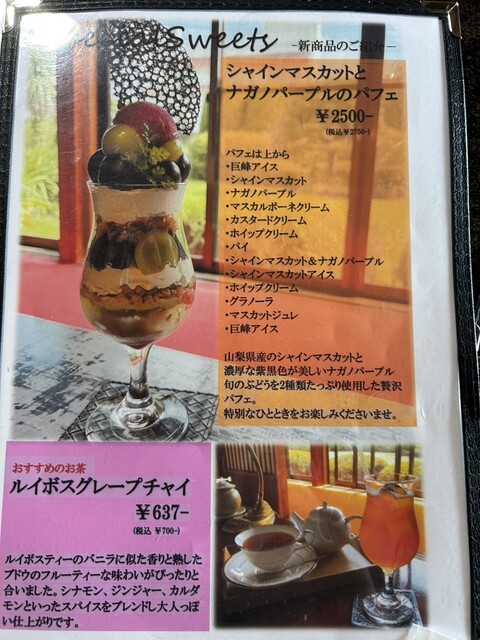 Sweets
-新商品のご紹介-
シャインマスカットと
ナガノパープルのパフェ
￥2500-
(税込￥2750-)
パフェは上から
・巨峰アイス
・シャインマスカット
・ナガノパープル
・マスカルポーネクリーム
・カスタードクリーム
・ホイップクリーム
・パイ
・シャインマスカット＆ナガノパープル
・シャインマスカットアイス
・ホイップクリーム
・グラノーラ
・マスカットジュレ
・巨峰アイス
山梨県産のシャインマスカットと
濃厚な紫黒色が美しいナガノパープル
旬のぶどうを2種類たっぷり使用した贅沢
パフェ。
特別なひとときをお楽しみくださいませ。
おすすめのお茶
ルイボスグレープチャイ
￥637-
(税込 ￥700-)
ルイボスティーのバニラに似た香りと熟した
ブドウのフルーティーな味わいがぴったりと
合いました。シナモン、ジンジャー、カルダ
モンといったスパイスをブレンドし大人っぽ
い仕上がりです。